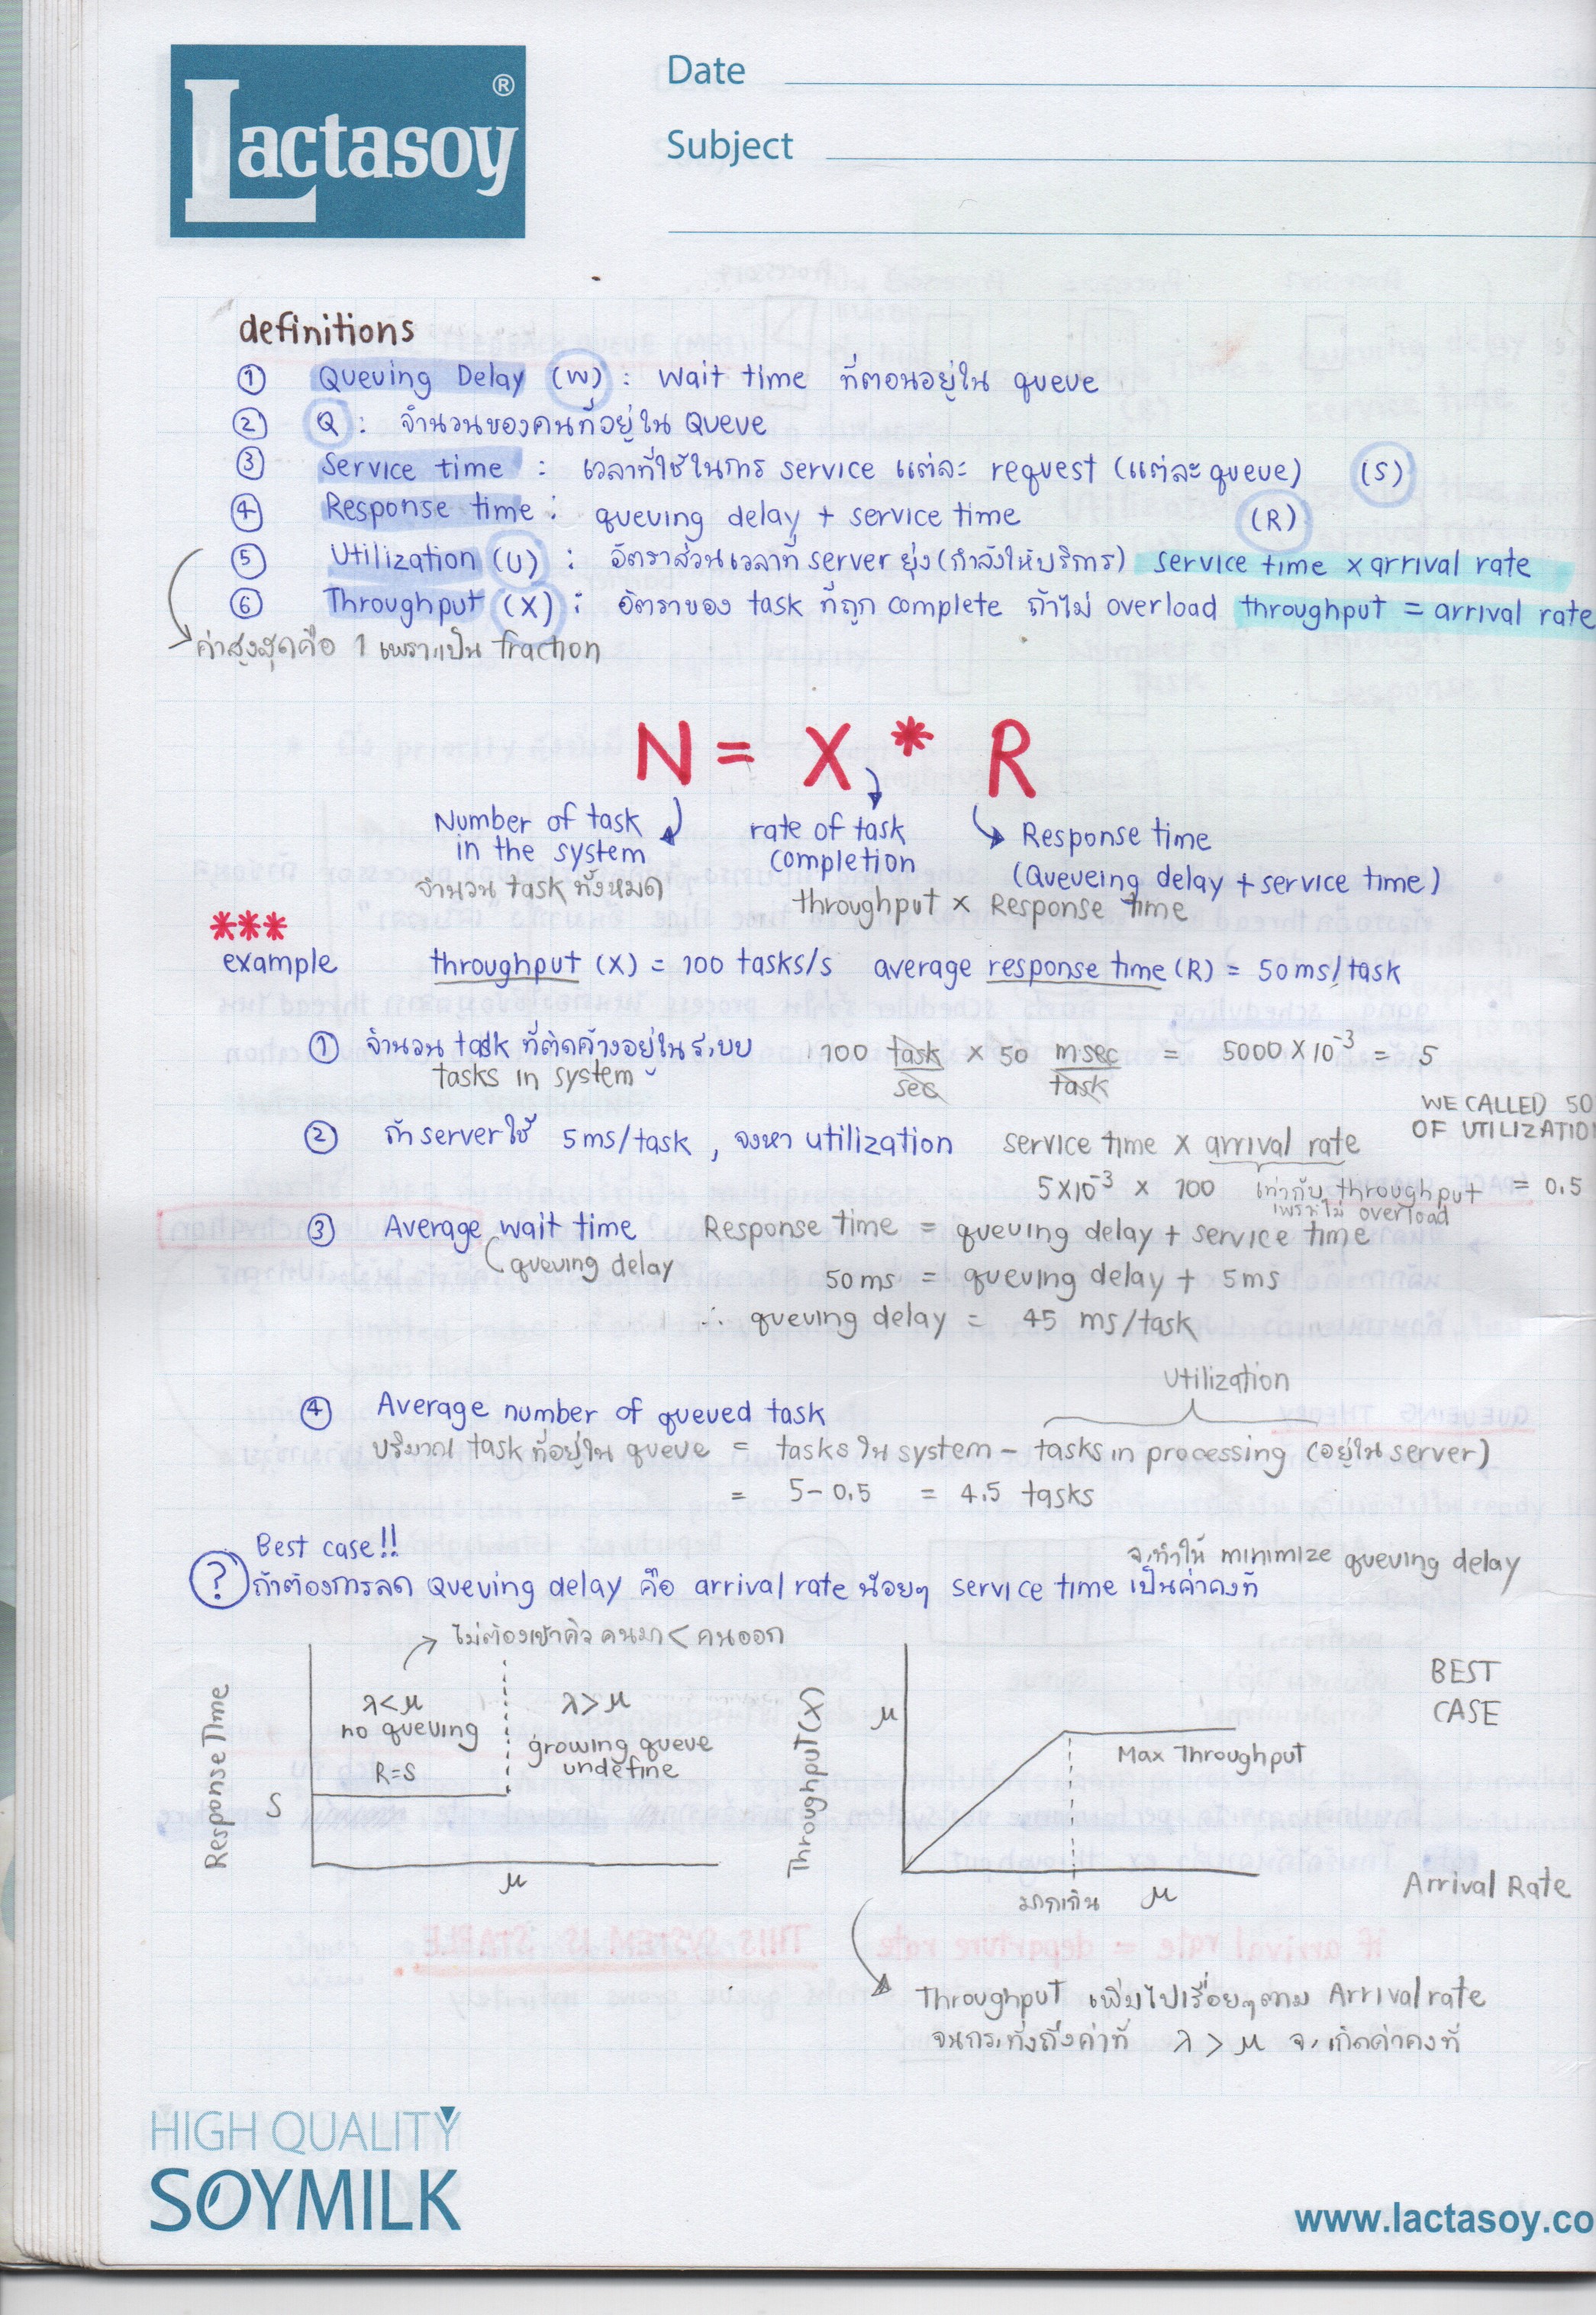 Lactasoy ®
Date
Subject
definitions
① Queuing Delay (W) : wait time ที่ตอนอยู่ใน queue
② Q : จำนวนของคนที่อยู่ใน Queue
③ Service time : เวลาที่ใช้ในการ service แต่ละ request (แต่ละ queue) (S)
④ Response time : queuing delay + service time (R)
⑤ Utilization (U) : อัตราส่วนเวลาที่ server ยุ่ง (กำลังให้บริการ) service time x arrival rate
⑥ Throughput (X) : อัตราของ task ที่ถูก complete ถ้าไม่ overload throughput = arrival rate
ค่าสูงสุดคือ 1 เพราะเป็น fraction
N = X * R
Number of task in the system
จำนวน task ทั้งหมด
rate of task completion
Response time
(Queueing delay + service time)
throughput x Response time
***
example throughput (X) = 100 tasks/s average response time (R) = 50 ms/task
① จำนวน task ที่ติดค้างอยู่ในระบบ 100 task/sec x 50 msec/task = 5000 x 10⁻³ = 5
tasks in system
WE CALLED 50
OF UTILIZATION
② ถ้า server ใช้ 5 ms/task , จงหา utilization service time x arrival rate
5x10⁻³ x 100 เท่ากับ throughput = 0.5
เพราะไม่ overload
③ Average wait time Response time = queuing delay + service time
queuing delay
50 ms = queuing delay + 5 ms
∴ queuing delay = 45 ms/task
Utilization
④ Average number of queued task
ปริมาณ task ที่อยู่ใน queue = tasks ใน system – tasks in processing (อยู่ใน server)
= 5 – 0.5 = 4.5 tasks
Best case!!
จะทำให้ minimize queuing delay
? ถ้าต้องการลด Queuing delay คือ arrival rate น้อยๆ service time เป็นค่าคงที่
ไม่ต้องเข้าคิว คนมา < คนออก
Response Time
λ<μ
no queuing
R=S
λ>μ
growing queue
undefine
S
μ
Throughput (X)
μ
Max Throughput
มากเกิน μ
BEST
CASE
Arrival Rate
Throughput เพิ่มไปเรื่อยๆตาม Arrival rate
จนกระทั่งถึงค่าที่ λ > μ จะเกิดค่าคงที่
HIGH QUALITY
SOYMILK
www.lactasoy.co